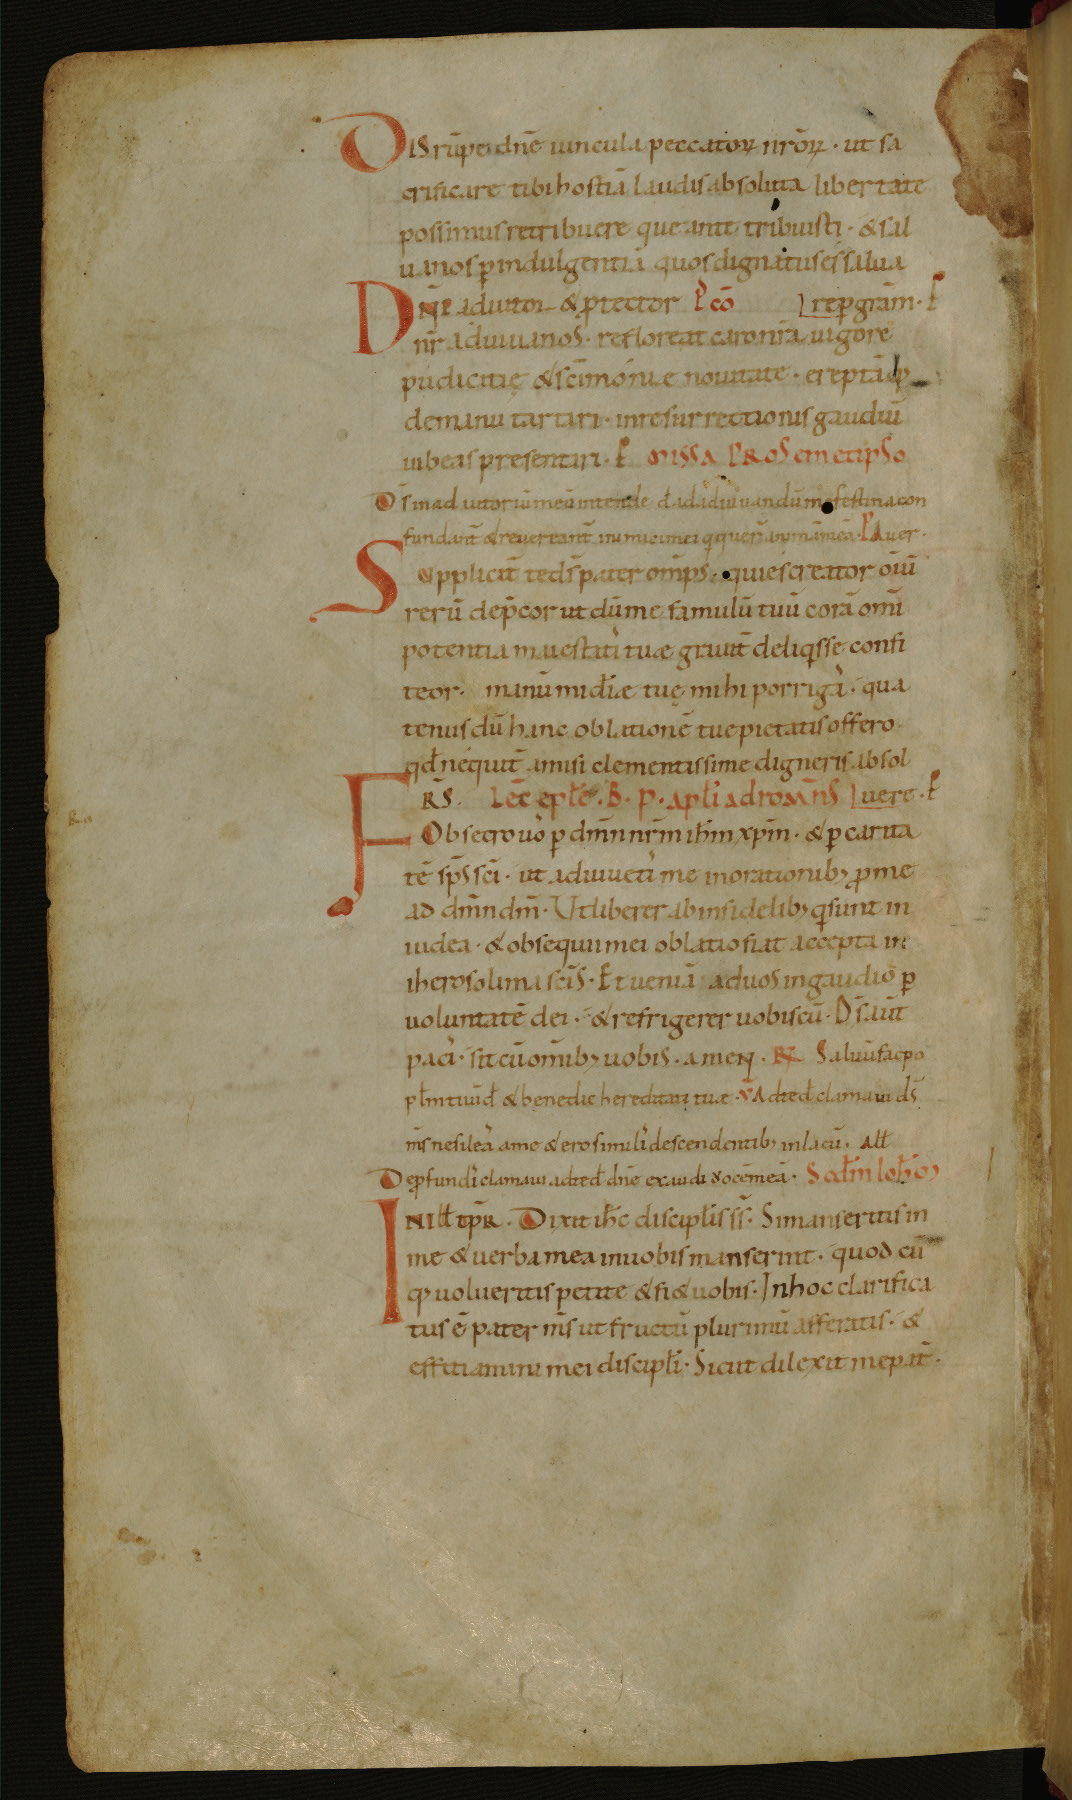 DISrūpe dn̄e uincula peccatoꝝ nr̄oꝝ · ut sa
crificare tibi hostiā laudis absoluta libertate
possimus retribuere que ante tribuisti · & sal
ua nos ꝑ indulgentiā quos dignatus es salua
DN̄E adiutor & ꝓtector P̄ cō re ꝑ grām · P̄
nr̄ adiuua nos · refloreat caro nr̄a uigore
pudicitię & sc̄imoniae nouitate · ereptāqꝫ
de manu tartari · in resurrectionis gaudiū
iubeas presentari · P̄ MISSA PRO SEMETIPSO
Ds̄ in adiutoriū meū intende dn̄e ad adiuuandū me festina con
fundant̄ & reuereant̄ inimici mei q̄ querū animā meā · P̄ Auer ·
Supplicit̄ te ds̄ pater omp̄s · qui es creator oīū
rerū dep̄cor ut dū me famulū tuū corā omī
potentia maiestatis tuae grauit̄ deliqsse confi
teor · manū mīdiae tuę mihi porrigas · qua
tenus dū hanc oblationē tue pietatis offero
qd̄ nequit̄ amisi clementissime digneris absol
uere · P̄
FRS̄ Lec̄ epl̄e · B · P · apl̄i ad romān̄s
Obsecro uos ꝑ dm̄n nr̄m ihm̄ xpm̄ · & ꝑ carita
tē sps̄ sc̄i · ut adiuuetis me in orationibꝫ ꝓ me
ad dm̄n dm̄ · Ut liberer ab infidelibꝫ q sunt in
iudea · & obsequii mei oblatio fiat accepta in
iherosolima sc̄is · Et ueniā ad uos in gaudio ꝑ
uoluntatē dei · & refrigerer uobiscū · Ds̄ aut̄
pacis · sit cū omībꝫ uobis · amen · R̄ Saluū fac po
pl̄m tuū dn̄e & benedic hereditati tuae · V̄ Ad te dn̄e clamaui ds̄
ms̄ ne sileas a me & ero similis descendentibꝫ in lacū · All̄
De ꝓfundis clamaui ad te dn̄e dn̄e exaudi uocē meā · Scdm̄ Ioh̄
IN ILL̄ TP̄R · Dixit ihc̄ discipl̄is ss̄ · Si manseritis in
me & uerba mea in uobis manserint · quod cū
qꝫ uolueritis petite & fi& uobis · In hoc clarifica
tus ē pater ms̄ ut fructū plurimū afferatis · &
efficiamini mei discipl̄i · Sicut dilexit me pat̄ ·